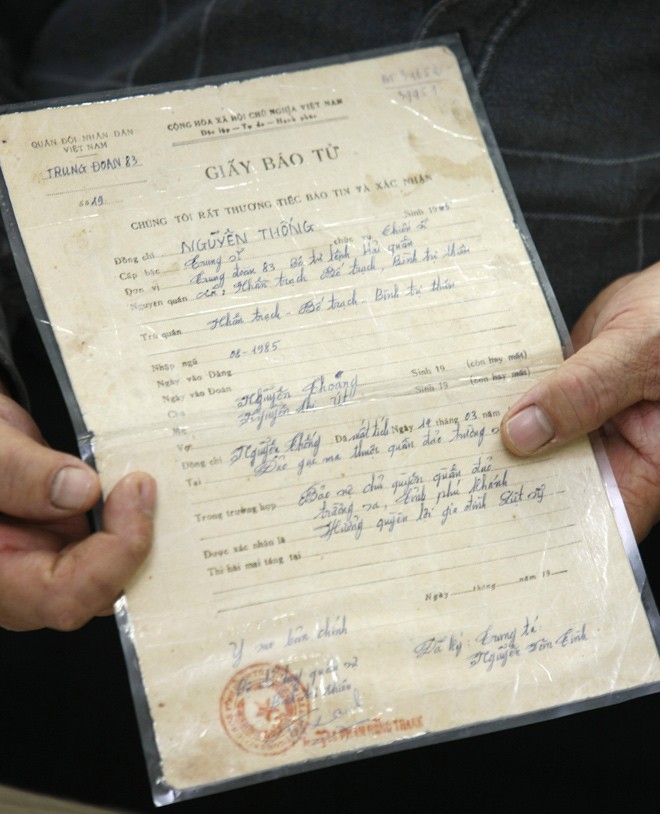 QUÂN ĐỘI NHÂN DÂN
VIỆT NAM
TRUNG ĐOÀN 83
Số 19
CỘNG HÒA XÃ HỘI CHỦ NGHĨA VIỆT NAM
Độc lập — Tự do — Hạnh phúc
GIẤY BÁO TỬ
CHÚNG TÔI RẤT THƯƠNG TIẾC BÁO TIN VÀ XÁC NHẬN
Đồng chí NGUYỄN THỐNG Sinh 19
Cấp bậc Trung sĩ chức vụ Chiến sĩ
Đơn vị Trung đoàn 83 Bộ tư lệnh Hải quân
Nguyên quán Nhân trạch, Bố trạch, Bình trị thiên
Trú quán Nhân trạch - Bố trạch - Bình trị thiên
Nhập ngũ 08-1985
Ngày vào Đảng
Ngày vào Đoàn
Cha Nguyễn Khoáng Sinh 19 (còn hay mất)
Mẹ Nguyễn thị Út Sinh 19 (còn hay mất)
Vợ
Đồng chí Nguyễn Thống Đã mất tích Ngày 14 tháng 03 năm
Tại Đảo gạc ma thuộc quần đảo trường
Trong trường hợp Bảo vệ chủ quyền quần đảo
trường sa, tỉnh phú Khánh
Được xác nhận là Hưởng quyền lợi gia đình Liệt sỹ
Thi hài mai táng tại
Ngày tháng năm 19
Y sao bản chính
Đã ký: Trung tá
Nguyễn Văn